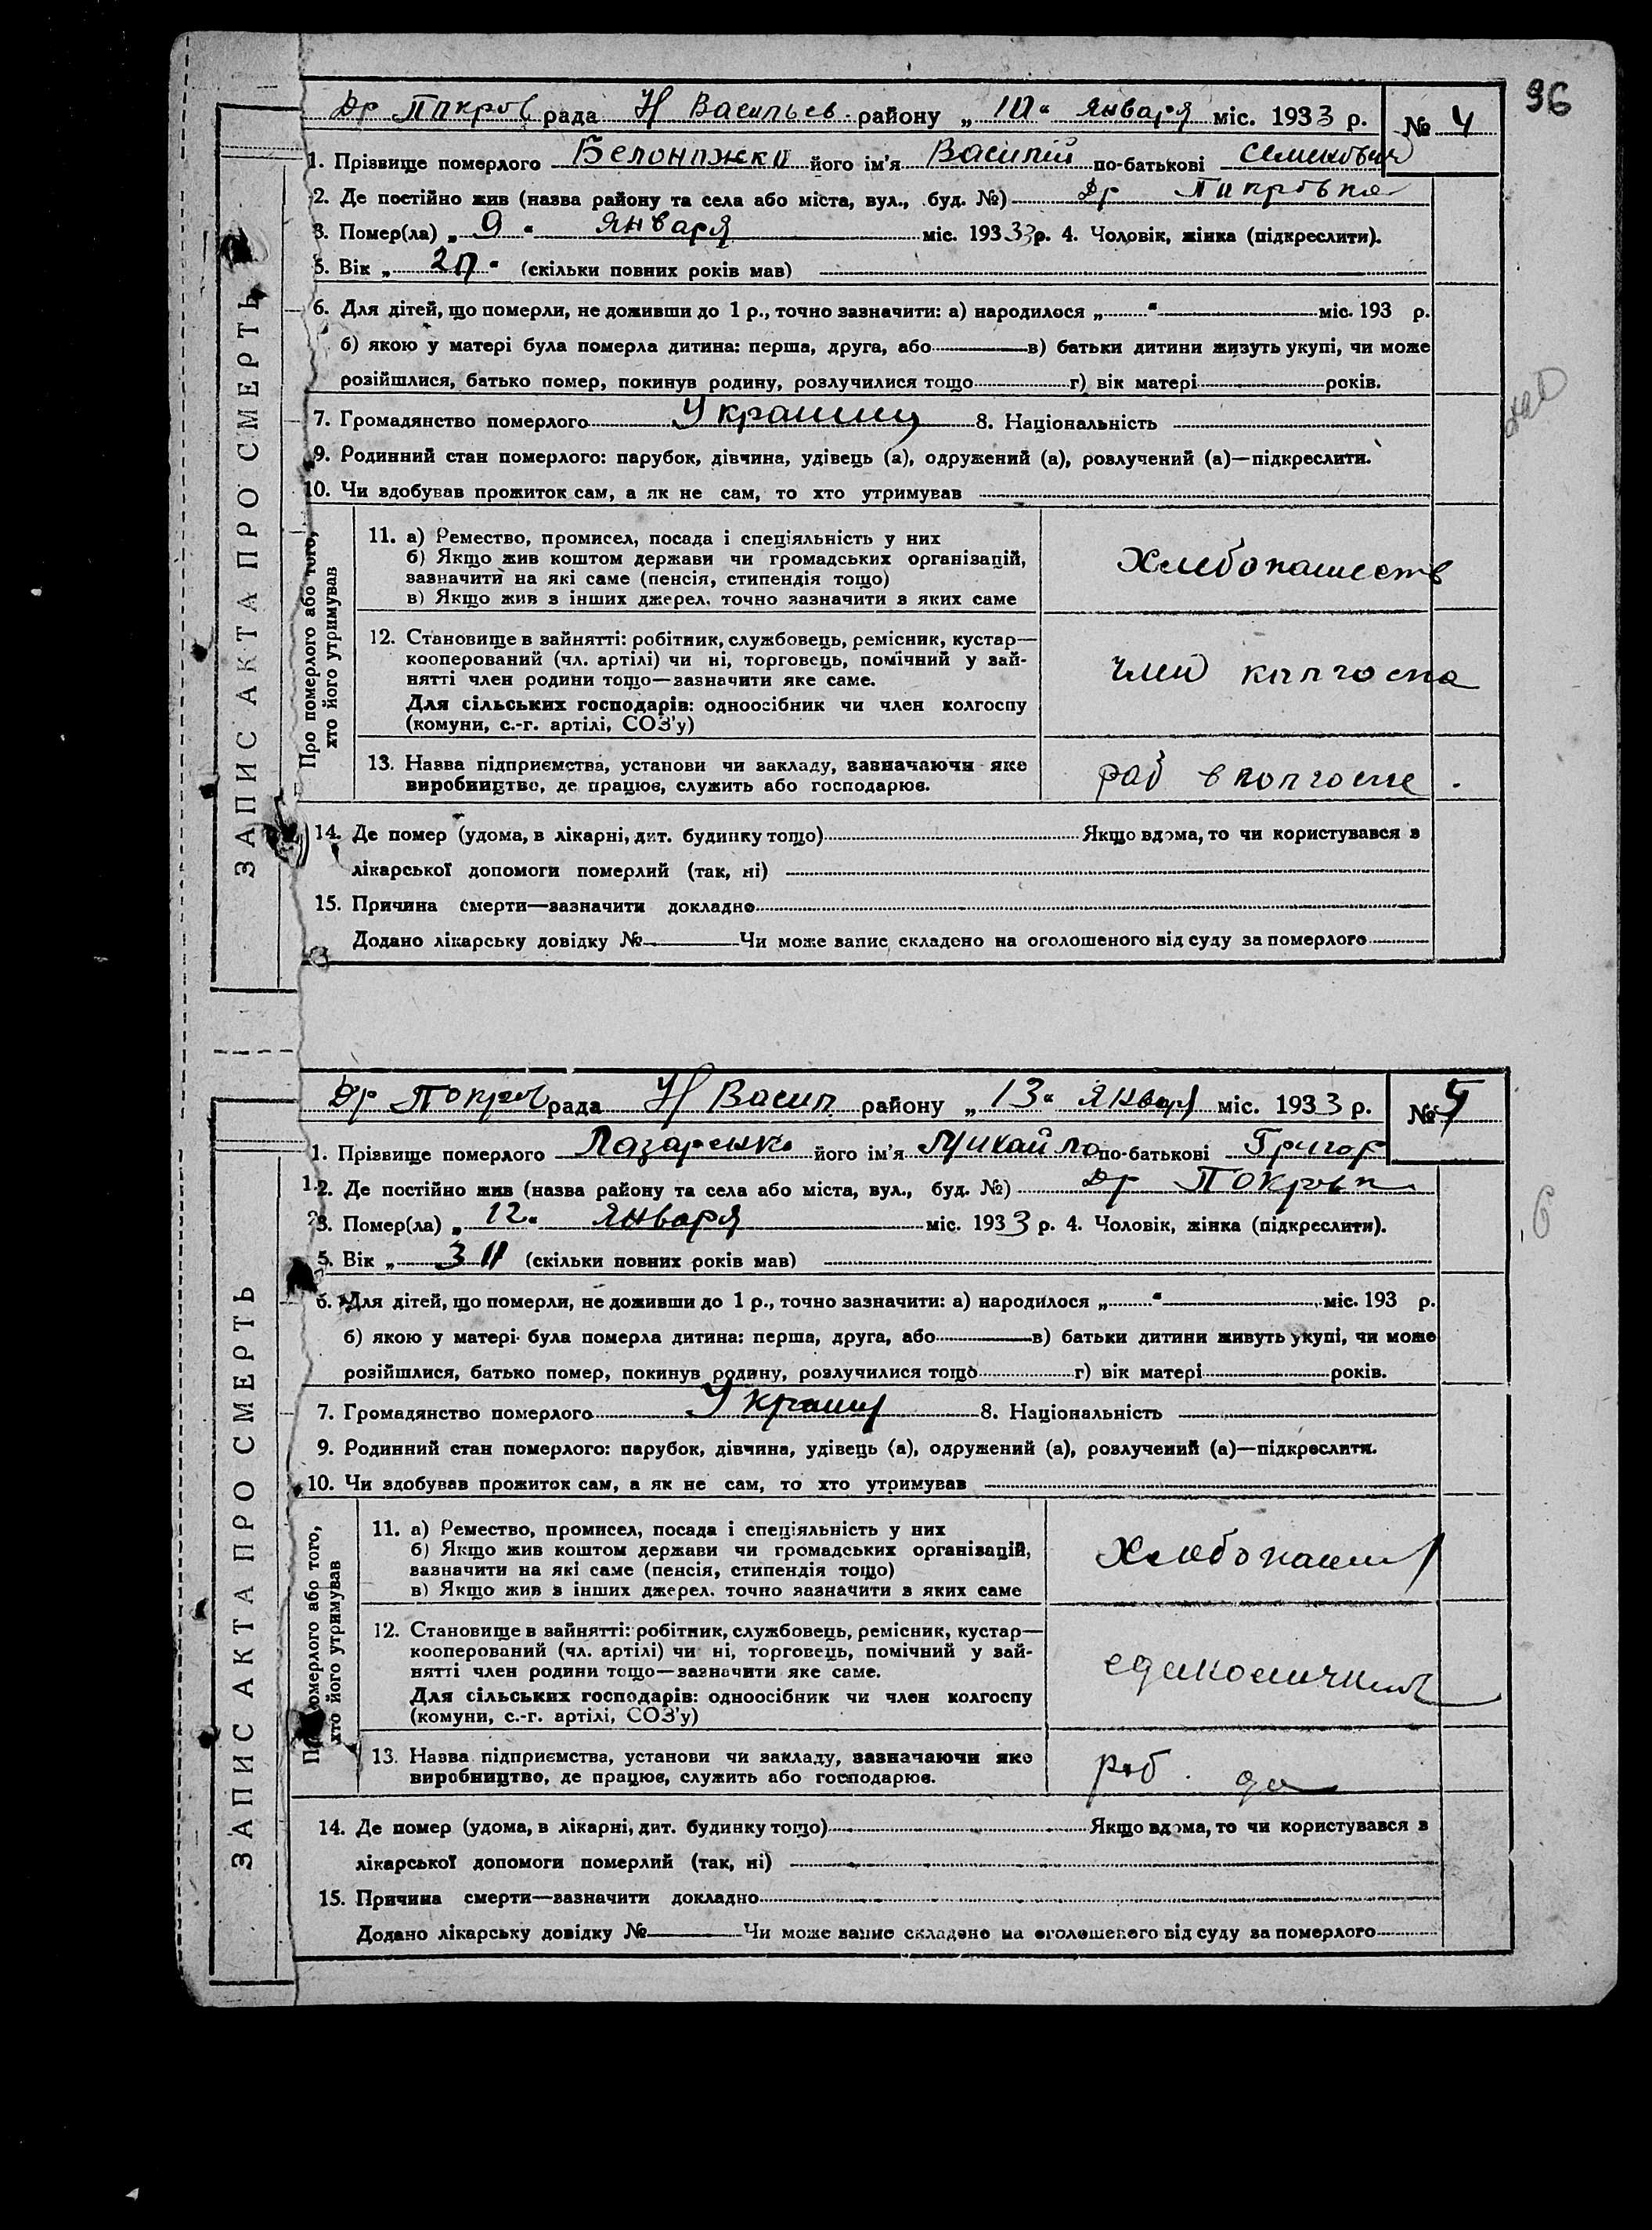 96
Др Покров рада Н Васильев. району „ 10 “ января міс. 1933 р. № 4
1. Прізвище померлого Белоножко його ім'я Василій по-батькові Семенович
2. Де постійно жив (назва району та села або міста, вул., буд. №) Др Покровка
3. Помер(ла) „ 9 “ января міс. 193 33 р. 4. Чоловік, жінка (підкреслити).
5. Вік „ 20 “ (скільки повних років мав)
6. Для дітей, що померли, не доживши до 1 р., точно зазначити: а) народилося „ “ міс. 193 р.
б) якою у матері була померла дитина: перша, друга, або в) батьки дитини живуть укупі, чи може
розійшлися, батько помер, покинув родину, розлучилися тощо г) вік матері років.
7. Громадянство померлого Украинец 8. Національність
9. Родинний стан померлого: парубок, дівчина, удівець (а), одружений (а), розлучений (а)—підкреслити.
10. Чи здобував прожиток сам, а як не сам, то хто утримував
ЗАПИС АКТА ПРО СМЕРТЬ
Про померлого або того,
хто його утримував
11. а) Ремество, промисел, посада і спеціяльність у них
б) Якщо жив коштом держави чи громадських організацій,
зазначити на які саме (пенсія, стипендія тощо)
в) Якщо жив з інших джерел, точно зазначити з яких саме
Хлебопашеств
12. Становище в зайнятті: робітник, службовець, ремісник, кустар—
кооперований (чл. артілі) чи ні, торговець, помічний у зай-
нятті член родини тощо—зазначити яке саме.
Для сільських господарів: одноосібник чи член колгоспу
(комуни, с.-г. артілі, СОЗ'у)
член колгоспа
13. Назва підприємства, установи чи закладу, зазначаючи яке
виробництво, де працює, служить або господарює.
раб в колгоспе
14. Де помер (удома, в лікарні, дит. будинку тощо) Якщо вдома, то чи користувався з
лікарської допомоги померлий (так, ні)
15. Причина смерти—зазначити докладно
Додано лікарську довідку № Чи може запис складено на оголошеного від суду за померлого
Др Покров рада Н Васил району „ 13 “ января міс. 1933 р. № 5
1. Прізвище померлого Лазаренко його ім'я Михайло по-батькові Григор
2. Де постійно жив (назва району та села або міста, вул., буд. №) Др Покровк
3. Помер(ла) „ 12 “ января міс. 1933 р. 4. Чоловік, жінка (підкреслити).
5. Вік „ 30 (скільки повних років мав)
6. Для дітей, що померли, не доживши до 1 р., точно зазначити: а) народилося „ “ міс. 193 р.
б) якою у матері була померла дитина: перша, друга, або в) батьки дитини живуть укупі, чи може
розійшлися, батько помер, покинув родину, розлучилися тощо г) вік матері років.
7. Громадянство померлого Украинец 8. Національність
9. Родинний стан померлого: парубок, дівчина, удівець (а), одружений (а), розлучений (а)—підкреслити.
10. Чи здобував прожиток сам, а як не сам, то хто утримував
ЗАПИС АКТА ПРО СМЕРТЬ
Про померлого або того,
хто його утримував
11. а) Ремество, промисел, посада і спеціяльність у них
б) Якщо жив коштом держави чи громадських організацій,
зазначити на які саме (пенсія, стипендія тощо)
в) Якщо жив з інших джерел, точно зазначити з яких саме
12. Становище в зайнятті: робітник, службовець, ремісник, кустар—
кооперований (чл. артілі) чи ні, торговець, помічний у зай-
нятті член родини тощо—зазначити яке саме.
Для сільських господарів: одноосібник чи член колгоспу
(комуни, с.-г. артілі, СОЗ'у)
единоличник
13. Назва підприємства, установи чи закладу, зазначаючи яке
виробництво, де працює, служить або господарює.
раб.
14. Де помер (удома, в лікарні, дит. будинку тощо) Якщо вдома, то чи користувався з
лікарської допомоги померлий (так, ні)
15. Причина смерти—зазначити докладно
Додано лікарську довідку № Чи може запис складено на оголошеного від суду за померлого